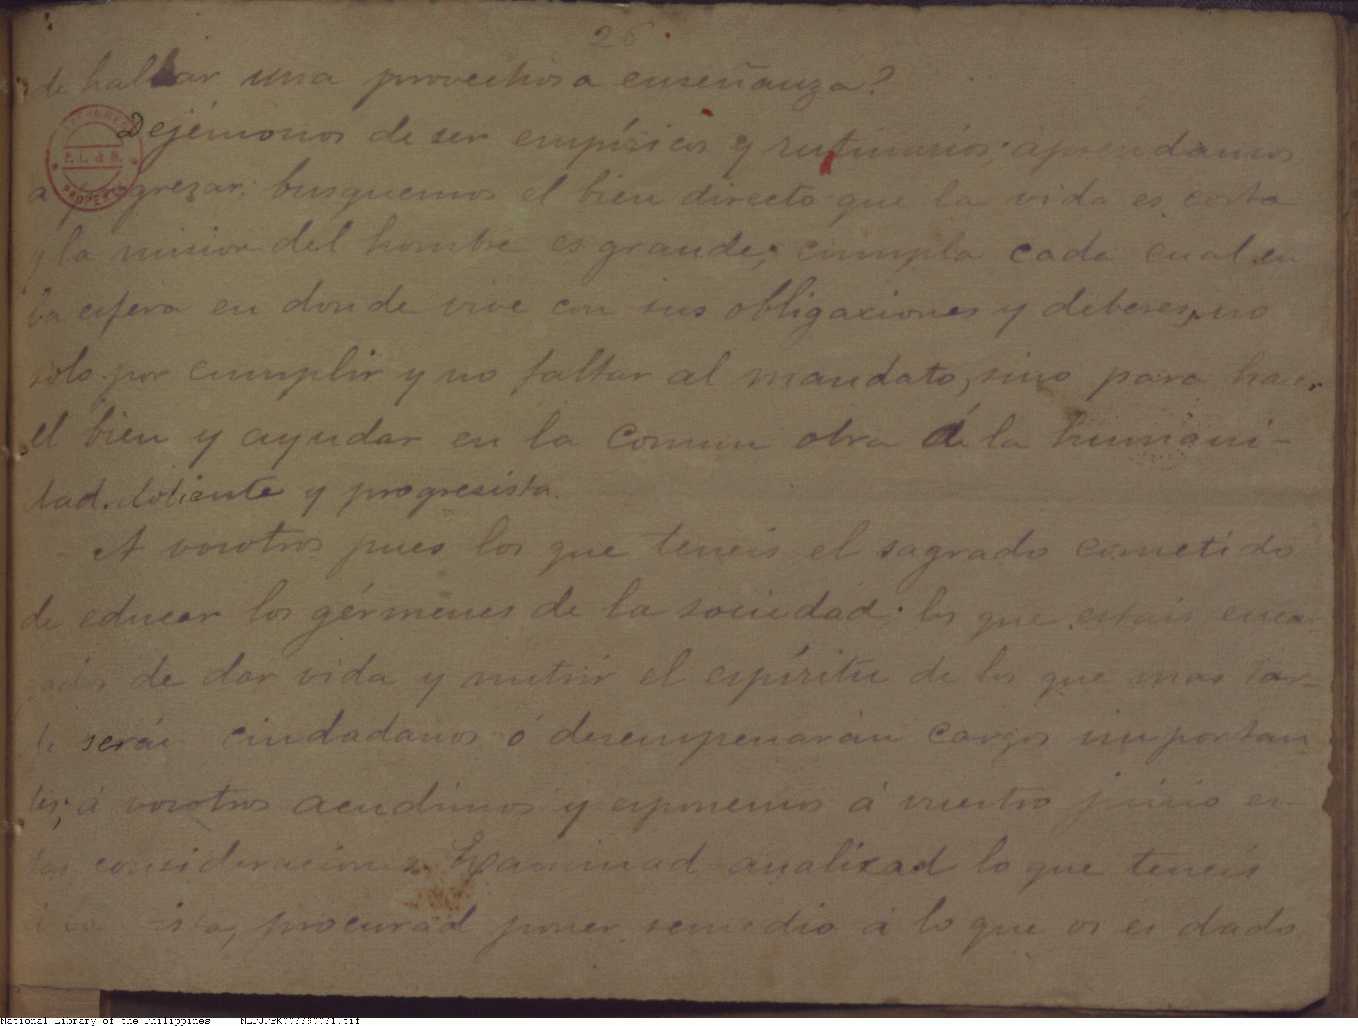 26
de hallar una provechosa enseñanza?
Dejémonos de ser empíricos y rutinarios; aprendamos
a progresar; busquemos el bien directo que la vida es corta
y la mision del hombre es grande; cumpla cada cual en
la esfera en donde vive con sus obligaciones y deberes, no
solo por cumplir y no faltar al mandato, sino para hacer
el bien y ayudar en la comun obra de la humani-
dad doliente y progresista.
A vosotros pues los que teneis el sagrado cometido
de educar los gérmenes de la sociedad; los que estais encar
gados de dar vida y nutrir el espíritu de los que mas tar-
de serán ciudadanos ó desempenarán cargos importan
tes; á vosotros acudimos y esponemos á vuestro juicio es-
tas consideraciones. Examinad analizad lo que teneis
á la vista, procurad poner remedio á lo que os es dado
PROPERTY
National Library of the Philippines